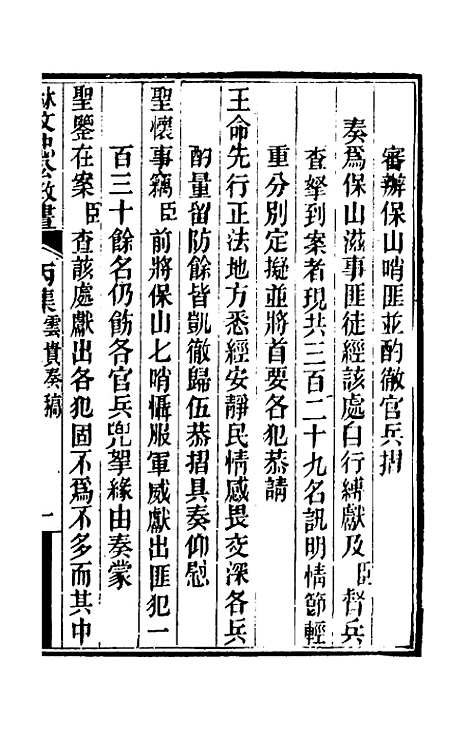 審辦保山哨匪並酌徹官兵摺
奏爲保山滋事匪徒經該處自行縛獻及臣督兵
查拏到案者現共三百二十九名訊明情節輕
重分別定擬並將首要各犯恭請
王命先行正法地方悉經安靜民情感畏交深各兵
酌量留防餘皆凱徹歸伍恭摺具奏仰慰
聖懷事竊臣前將保山七哨懾服軍威獻出匪犯一
百三十餘名仍飭各官兵兜拏緣由奏蒙
聖鑒在案臣查該處獻出各犯固不爲不多而其中
林文忠公政書
丙集雲貴奏稿
一